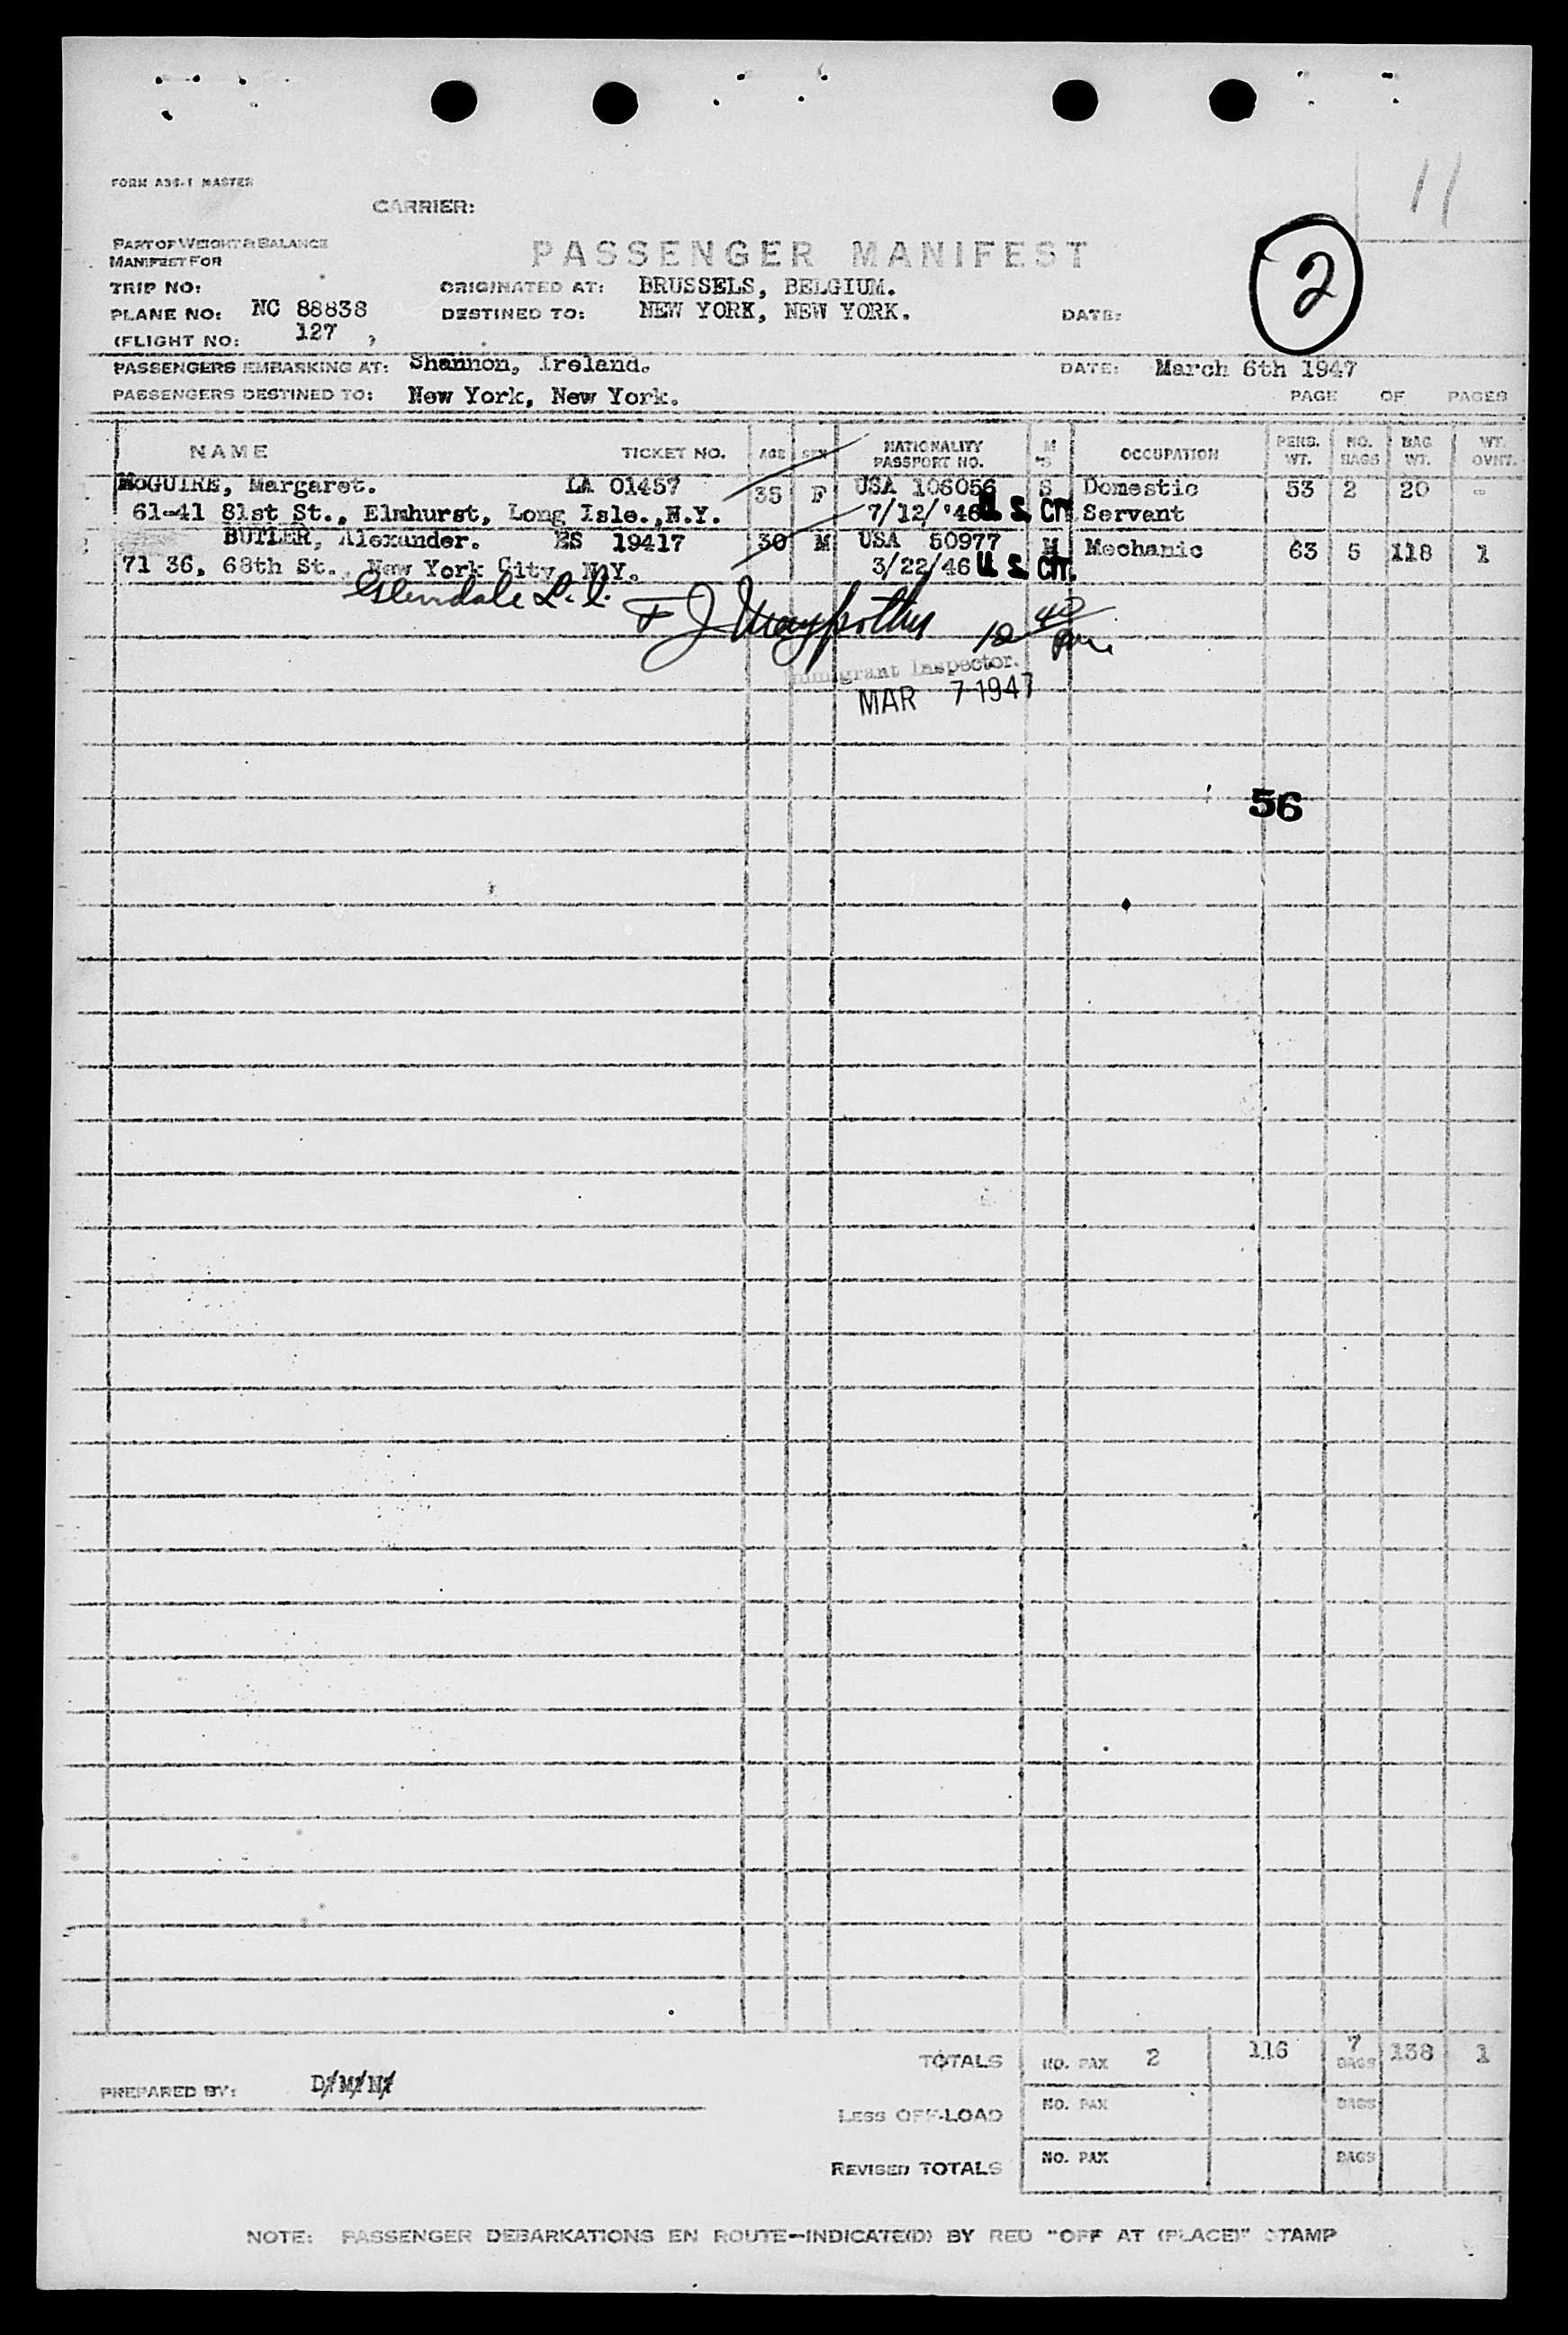 11
FORM A36-1 MASTER
CARRIER:
PART OF WEIGHT & BALANCE
MANIFEST FOR
PASSENGER MANIFEST
2
TRIP NO:
ORIGINATED AT: BRUSSELS, BELGIUM.
PLANE NO: NC 88838
DESTINED TO: NEW YORK, NEW YORK.
DATE:
(FLIGHT NO: 127 )
PASSENGERS EMBARKING AT: Shannon, Ireland.
DATE: March 6th 1947
PASSENGERS DESTINED TO: New York, New York.
PAGE OF PAGES
NAME TICKET NO. AGE SEX NATIONALITY PASSPORT NO. M S OCCUPATION PERS. WT. NO. BAGS BAG WT. WT. OVWT.
McGUIRE, Margaret. LA 01457 35 F USA 106056 S Domestic 53 2 20 -
61-41 81st St., Elmhurst, Long Isle., N.Y. 7/12/'46 U. S. CIT. Servant
BUTLER, Alexander. ES 19417 30 M USA 50977 M Mechanic 63 5 118 1
71 36, 68th St., New York City, N.Y. 3/22/46 U. S. CIT.
Glendale L. I.
F J
12 40 pm.
Immigrant Inspector.
MAR 7 1947
56
TOTALS NO. PAX 2 116 7 BAGS 138 1
PREPARED BY: D/M/N/
LESS OFF-LOAD NO. PAX BAGS
REVISED TOTALS NO. PAX BAGS
NOTE: PASSENGER DEBARKATIONS EN ROUTE—INDICATE(D) BY RED "OFF AT (PLACE)" STAMP